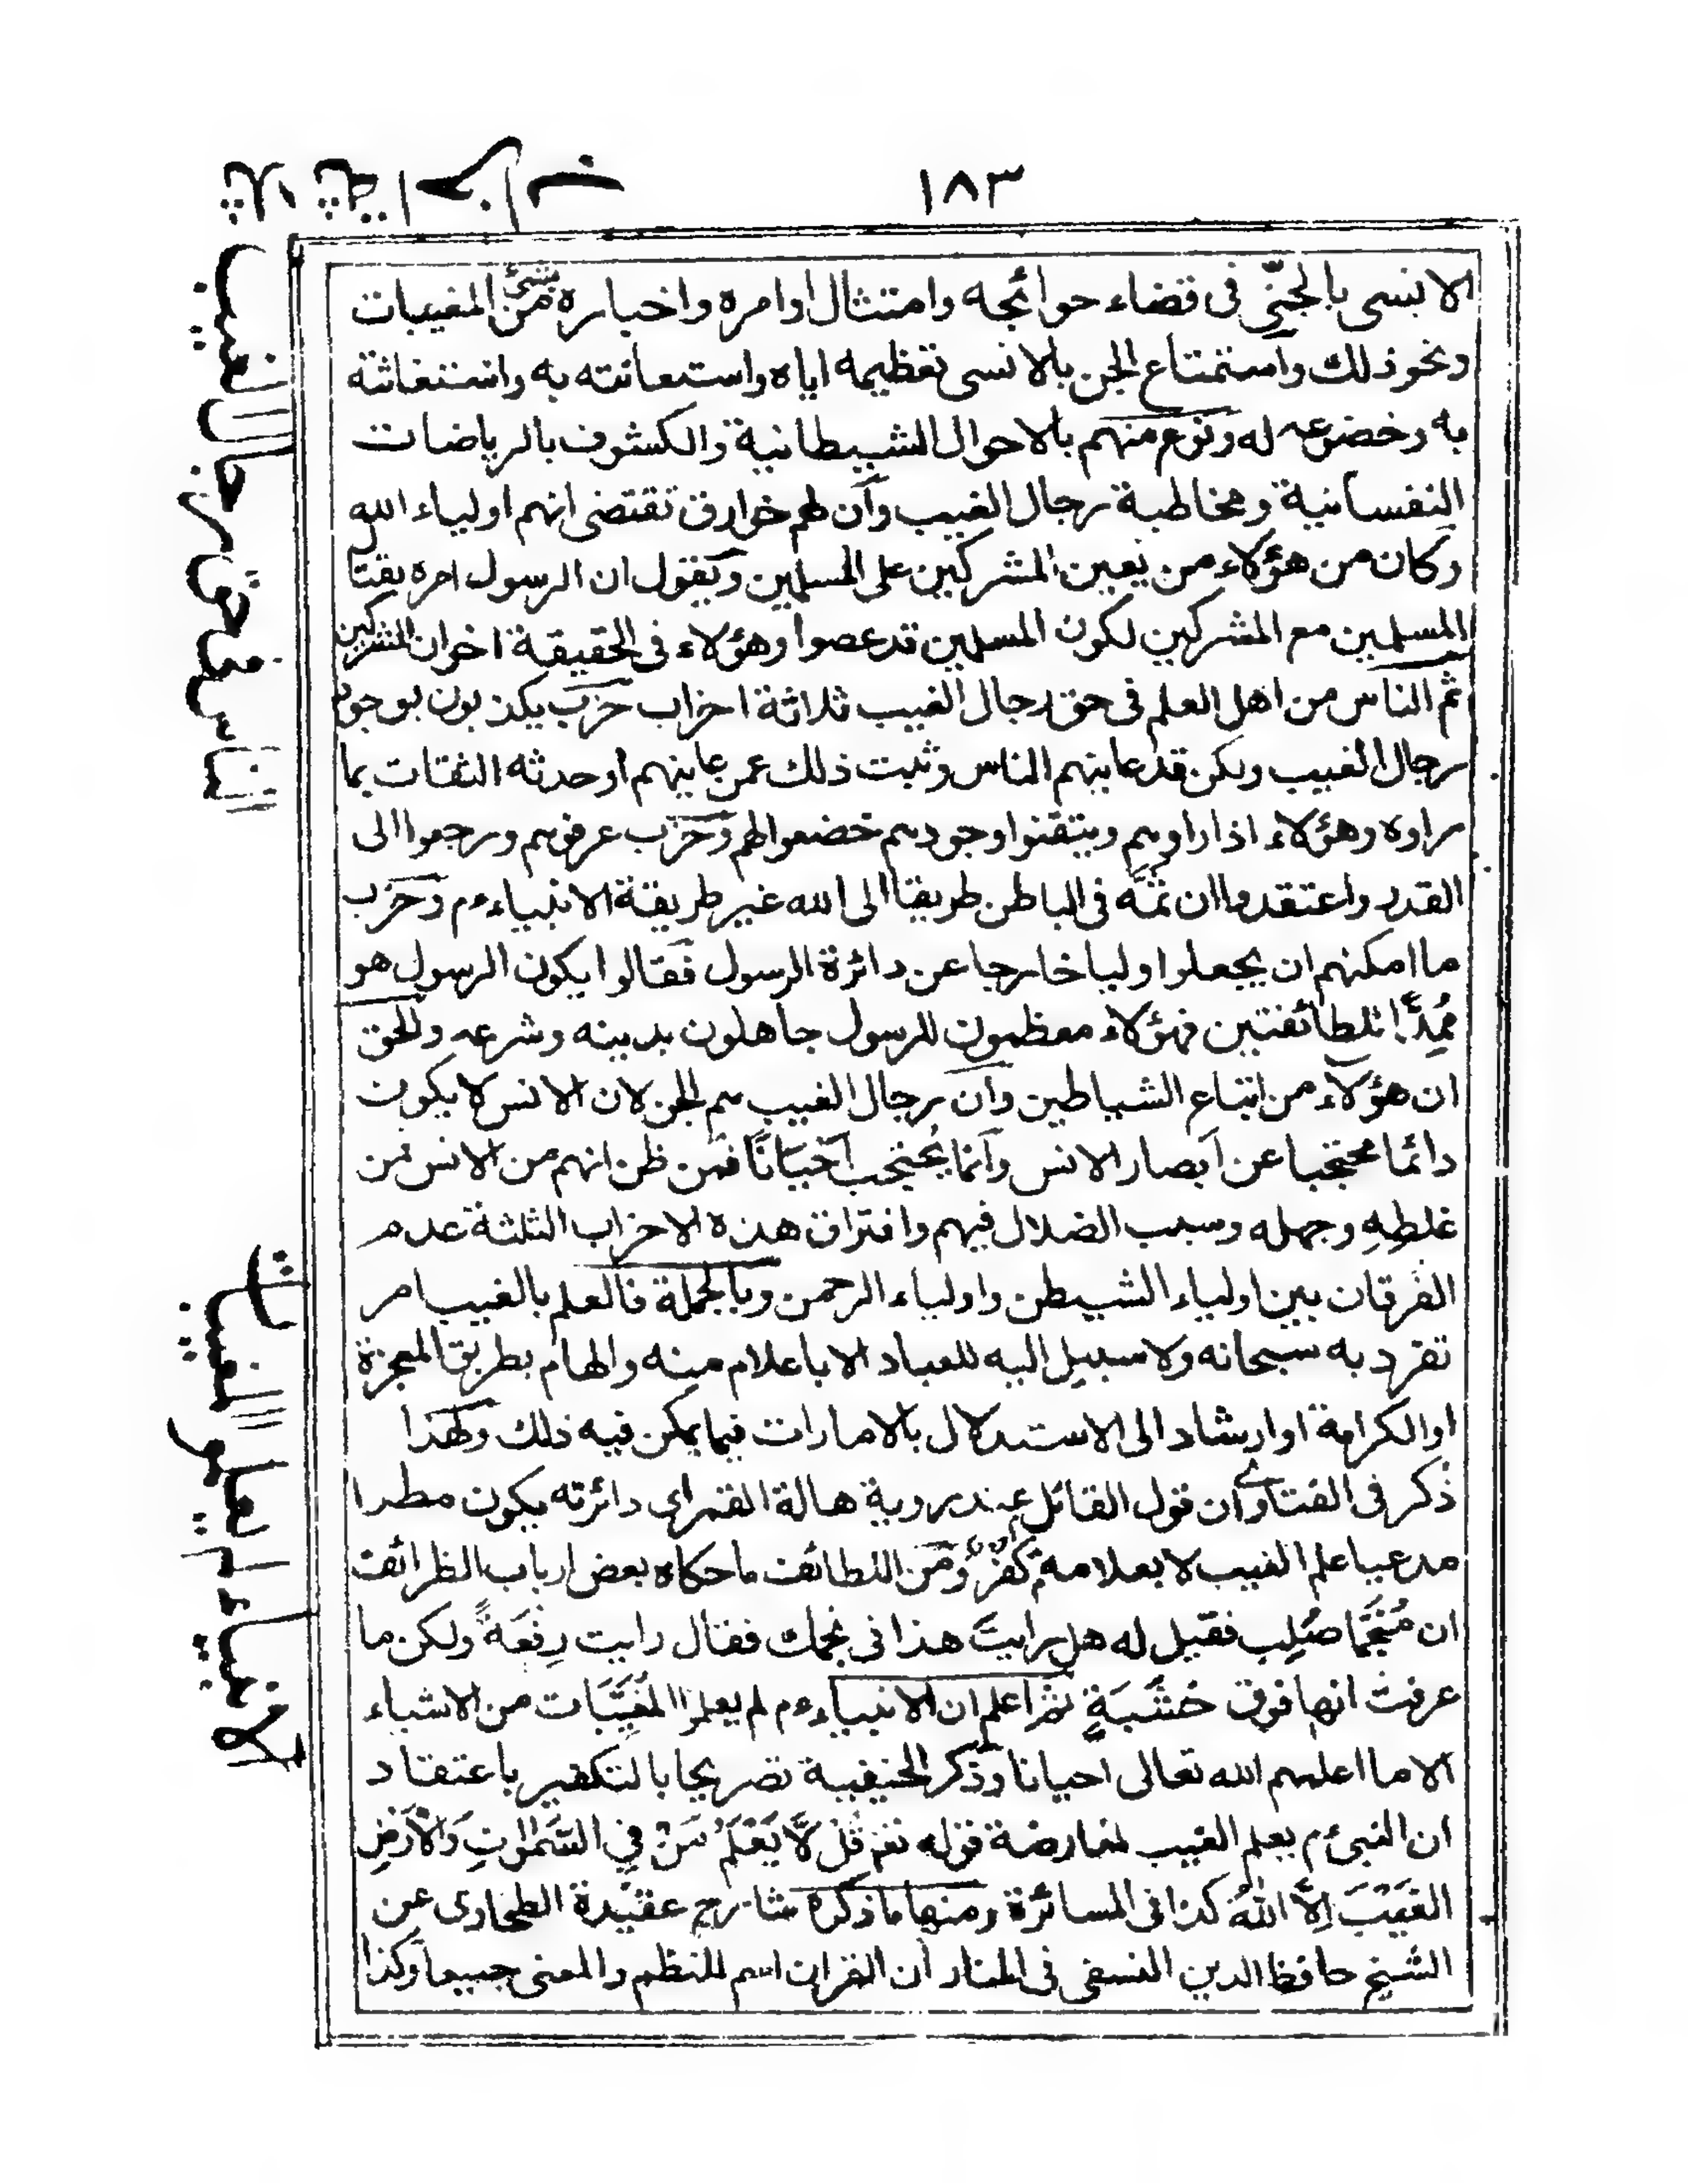 ١٨٣
الانسى بالجنّى فى قضاء حوائجه وامتثال اوامره واخباره بشئ من المغيبات
ونحو ذلك واستمتاع الجن بالانسى تعظيمه اياه واستعانته به واستغاثته
به وخضوعه له ونوع منهم بالاحوال الشيطانية والكشوف بالرياضات
النفسانية ومخاطبة رجال الغيب وان لهم خوارق تقتضى انهم اولياء الله
وكان من هؤلاء من يعين المشركين على المسلمين ويقول ان الرسول امره بقتال
المسلمين مع المشركين لكون المسلمين قد عصوا وهؤلاء فى الحقيقة اخوان المشركين
ثم الناس من اهل العلم فى حق رجال الغيب ثلاثة احزاب حزب يكذبون بوجود
رجال الغيب ولكن قد عاينهم الناس وثبت ذلك عمن عاينهم او حدثه الثقات بما
راوه وهؤلاء اذا راوهم ويتقنوا وجودهم خضعوا لهم وحزب عرفوهم ورجعوا الى
القدر واعتقدوا ان ثمّه فى الباطن طريقا الى الله غير طريقة الانبياء ءم وحزب
ما امكنهم ان يجعلوا وليا خارجا عن دائرة الرسول فقالوا يكون الرسول هو
مُمِدًّا للطائفتين فهؤلاء معظمون للرسول جاهلون بدينه وشرعه والحق
ان هؤلاء من اتباع الشياطين وان رجال الغيب هم الجن لان الانس لا يكون
دائما محتجبا عن ابصار الانس وانما يُحتجب احيانًا فمن ظن انهم من الانس فمن
غلطِهِ وجهله وسبب الضلال فيهم وافتراق هذه الاحزاب الثلثة عدم
الفرقان بين اولياء الشيطن واولياء الرحمن وبالجملة فالعلم بالغيب امر
تفرد به سبحانه ولا سبيل اليه للعباد الا باعلام منه والهام بطريق المعجزة
او الكرامة او ارشاد الى الاستدلال بالامارات فيما يمكن فيه ذلك ولهذا
ذكر فى الفتاوى ان قول القائل عند روية هالة القمر اى دائرته يكون مطرا
مدعيا علم الغيب لا بعلامة كفر ومن اللطائف ما حكاه بعض ارباب الظرائف
ان مُنَجِّمًا صُلِب فقيل له هل رايتَ هذا فى نجمك فقال رايت رِفْعَةً ولكن ما
عرفت انها فوق خشَبَةٍ ثم اعلم ان الانبياء ءم لم يعلموا المغيَّبَات من الاشياء
الا ما اعلمهم الله تعالى احيانا وذكر الحنيفية تصريحا بالتكفير باعتقاد
ان النبى ءم يعلم الغيب لمعارضة قوله تعر قُلْ لَّا يَعْلَمُ مَنْ فِي السَّمٰوٰتِ وَالْاَرْضِ
الْغَيْبَ اِلَّا اللّٰهُ كذا فى المسائرة ومنها ما ذكره شارح عقيدة الطحاوى عن
الشيخ حافظ الدين النسفى فى المنار ان القران اسم للنظم والمعنى جميعا وكذا
الناس فى حق رجال الغيب
الانبياء لم يعلموا المغيبات